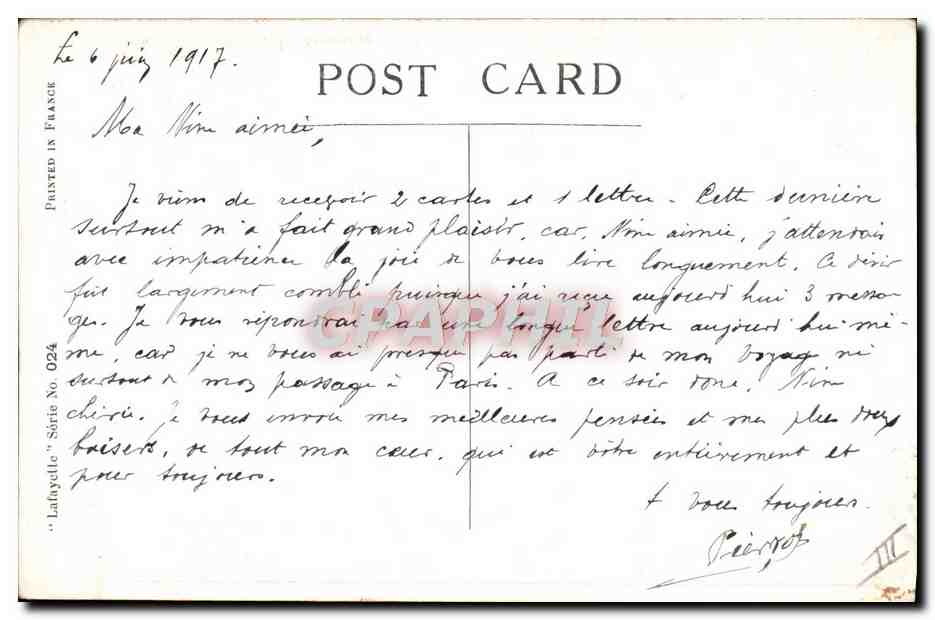 Le 6 juin 1917.
POST CARD
PRINTED IN FRANCE
Ma Nine aimée,
Je viens de recevoir 2 cartes et 1 lettre - Cette dernière
surtout m'a fait grand plaisir, car, Nine aimée, j'attendais
avec impatience la joie de vous lire longuement. Ce désir
fut largement comblé puisque j'ai reçu aujourd'hui 3 messa-
ges. Je vous répondrai par une longue lettre aujourd'hui mê-
me, car je ne vous ai presque pas parlé de mon voyage ni
surtout de mon passage à Paris. A ce soir donc, Nine
chérie. Je vous envoie mes meilleures pensées et mes plus doux
baisers, de tout mon cœur, qui est vôtre entièrement et
pour toujours.
"Lafayette" Série No. 024
vous toujours.
Pierrot
III
CPAPHIL